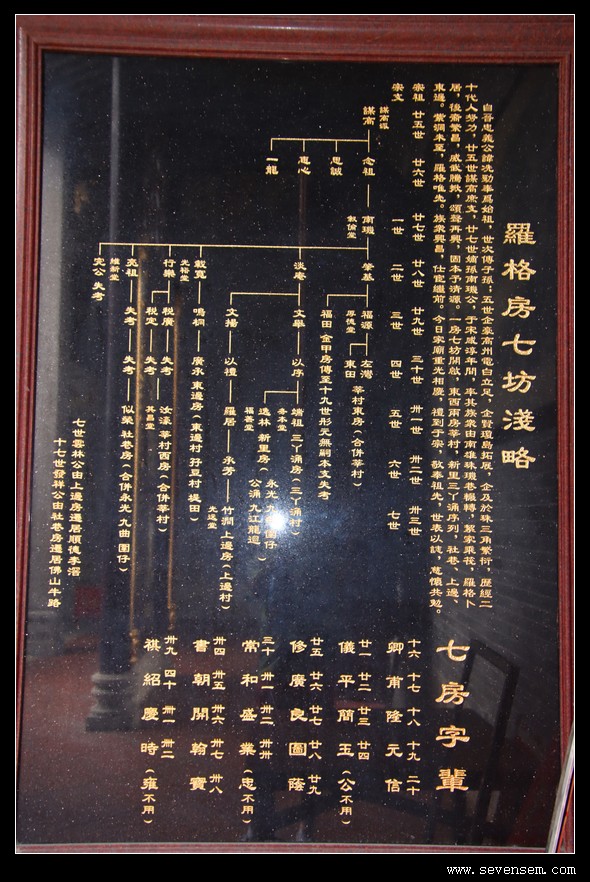 羅格房七坊淺略
自晉忠義公諱冼勁奉爲始祖，世次傳子孫，五世企豪高州電白立足，企賢環島拓展，企及於珠三角繁衍，歷經二
十代人努力，廿五世謀高庶支，廿七世嫡孫南璣公，于宋咸淳年間，率其族衆由南雄珠璣巷輾轉，絜家乘筏，羅格卜
居，後裔繁昌，威武騰揪，頌聲再興，固本予清源。一房七坊開啟，東西兩房莘村，新里三丫涌序列，社巷、上邊、
東邊。紫洞未至，羅格唯先。族衆興昌，仕宦繼前。今日家廟重光相慶，禮到于宗，敬奉祖先，世表以誌，慈懷共勉。
宗祖 廿五世 廿六世 廿七世 廿八世 廿九世 三十世 卅一世 卅二世 卅三世
宗支 一世 二世 三世 四世 五世 六世 七世
謀高
念祖 南璣 肇基 福源 左灣 莘村東房（合併莘村）
敘倫堂
厚德堂 東田
福田 金甲房傳至十九世彤元無嗣本支失考
思誠
惠心
一龍
淡庵 文舉 以序 端祖 三丫涌房（三丫涌村）
務本堂
逸林 新里房（公涌 九江龍迴
福善堂
文揚 以禮 羅居 永芳 竹澗 上邊房（上邊村）
光遠堂
載寬 鳴桐 廣永 東邊房（東邊村 孖旦村 堤田）
光裕堂
行樂 税廣 失考 汝濠 莘村西房（合併莘村）
税定 失考 其昌堂
亮祖 失考 失考 似榮 社巷房（合併永光 九曲 圍仔）
維新堂
完公 失考
七世雲林公由上邊房遷居順德李滘
十七世發祥公由社巷房遷居佛山牛路
七房字輩
十六 十七 十八 十九 二十
卿 甫 隆 元 信
廿一 廿二 廿三 廿四
儀 平 簡 玉（公不用）
廿五 廿六 廿七 廿八 廿九
修 廣 良 圖 蔭
三十 卅一 卅二 卅卅
常 和 盛 業（忠不用）
卅四 卅五 卅六 卅七 卅八
書 朝 開 翰 寶
卅九 四十 卌一 卌二
祺 紹 慶 時（雍不用）
www.sevensem.com